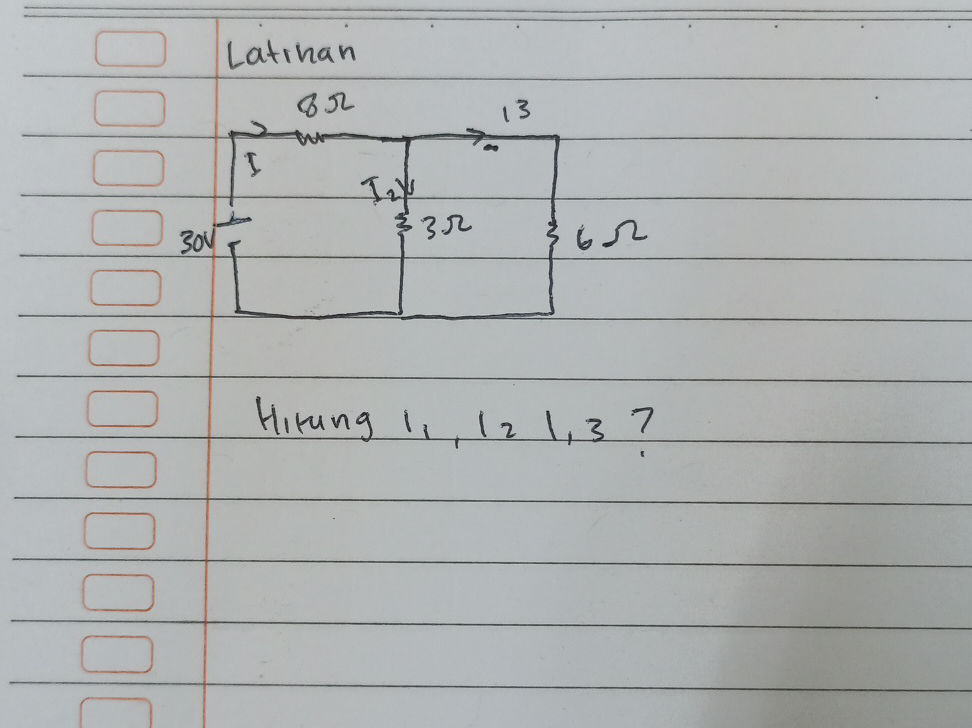 Latihan
8Ω
13
I
I2
3Ω
30V
6Ω
Hitung I1, I2 I,3 ?